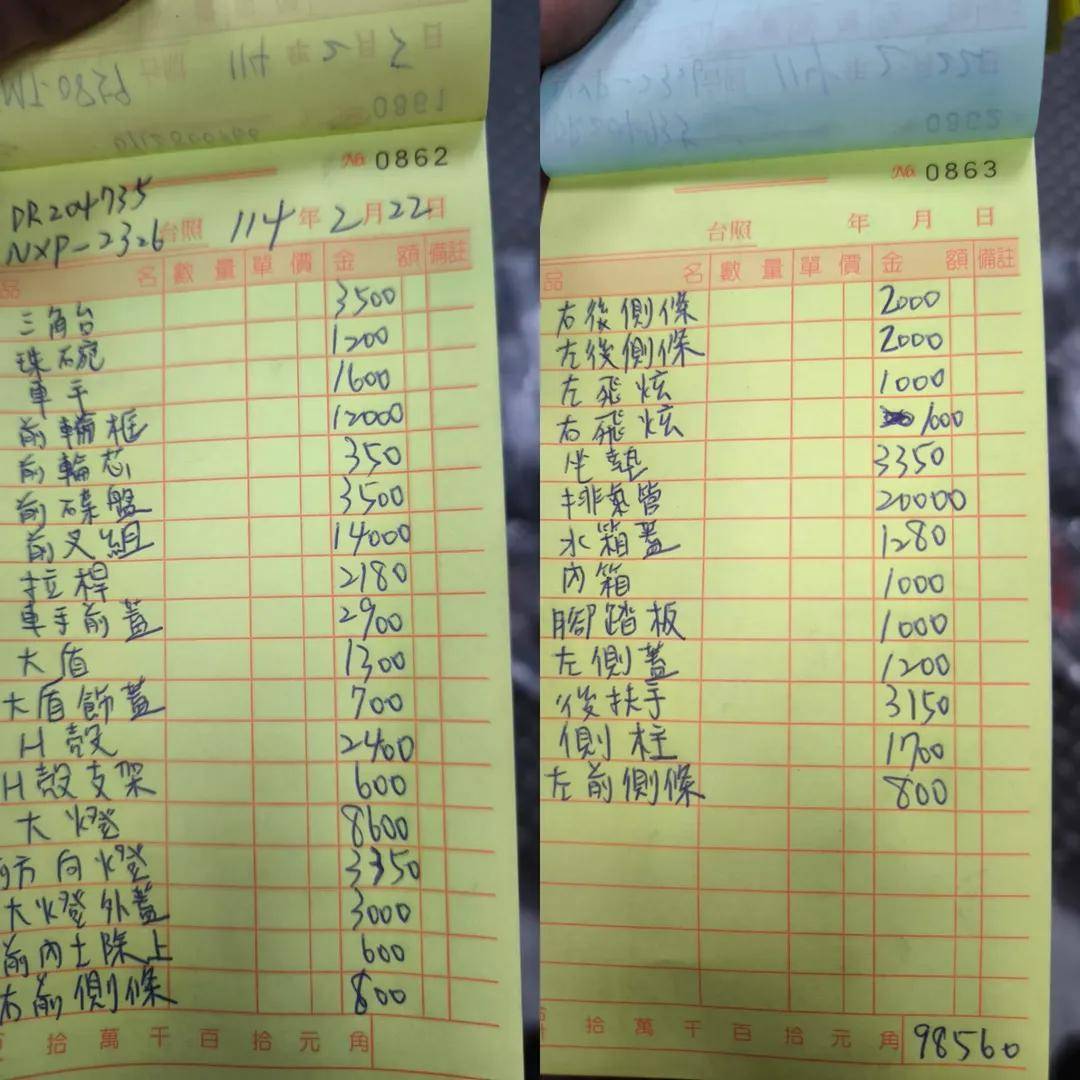 № 0862
DR204735
NXP-2326 台照 114年2月22日
品名 數量 單價 金額 備註
三角台 3500
珠碗 1200
車手 1600
前輪框 12000
前輪芯 350
前碟盤 3500
前叉組 14000
拉桿 2180
車手前蓋 2900
大盾 1300
大盾飾蓋 700
H殼 2400
H殼支架 600
大燈 8600
方向燈 3350
大燈外蓋 3000
前內土除上 600
右前側條 800
拾萬千百拾元角
№ 0863
台照 年 月 日
品名 數量 單價 金額 備註
右後側條 2000
左後側條 2000
左飛炫 1000
右飛炫 1000
坐墊 3350
排氣管 20000
水箱蓋 1280
內箱 1000
腳踏板 1000
左側蓋 1200
後扶手 3150
側柱 1700
左前側條 800
拾萬千百拾元角 98560